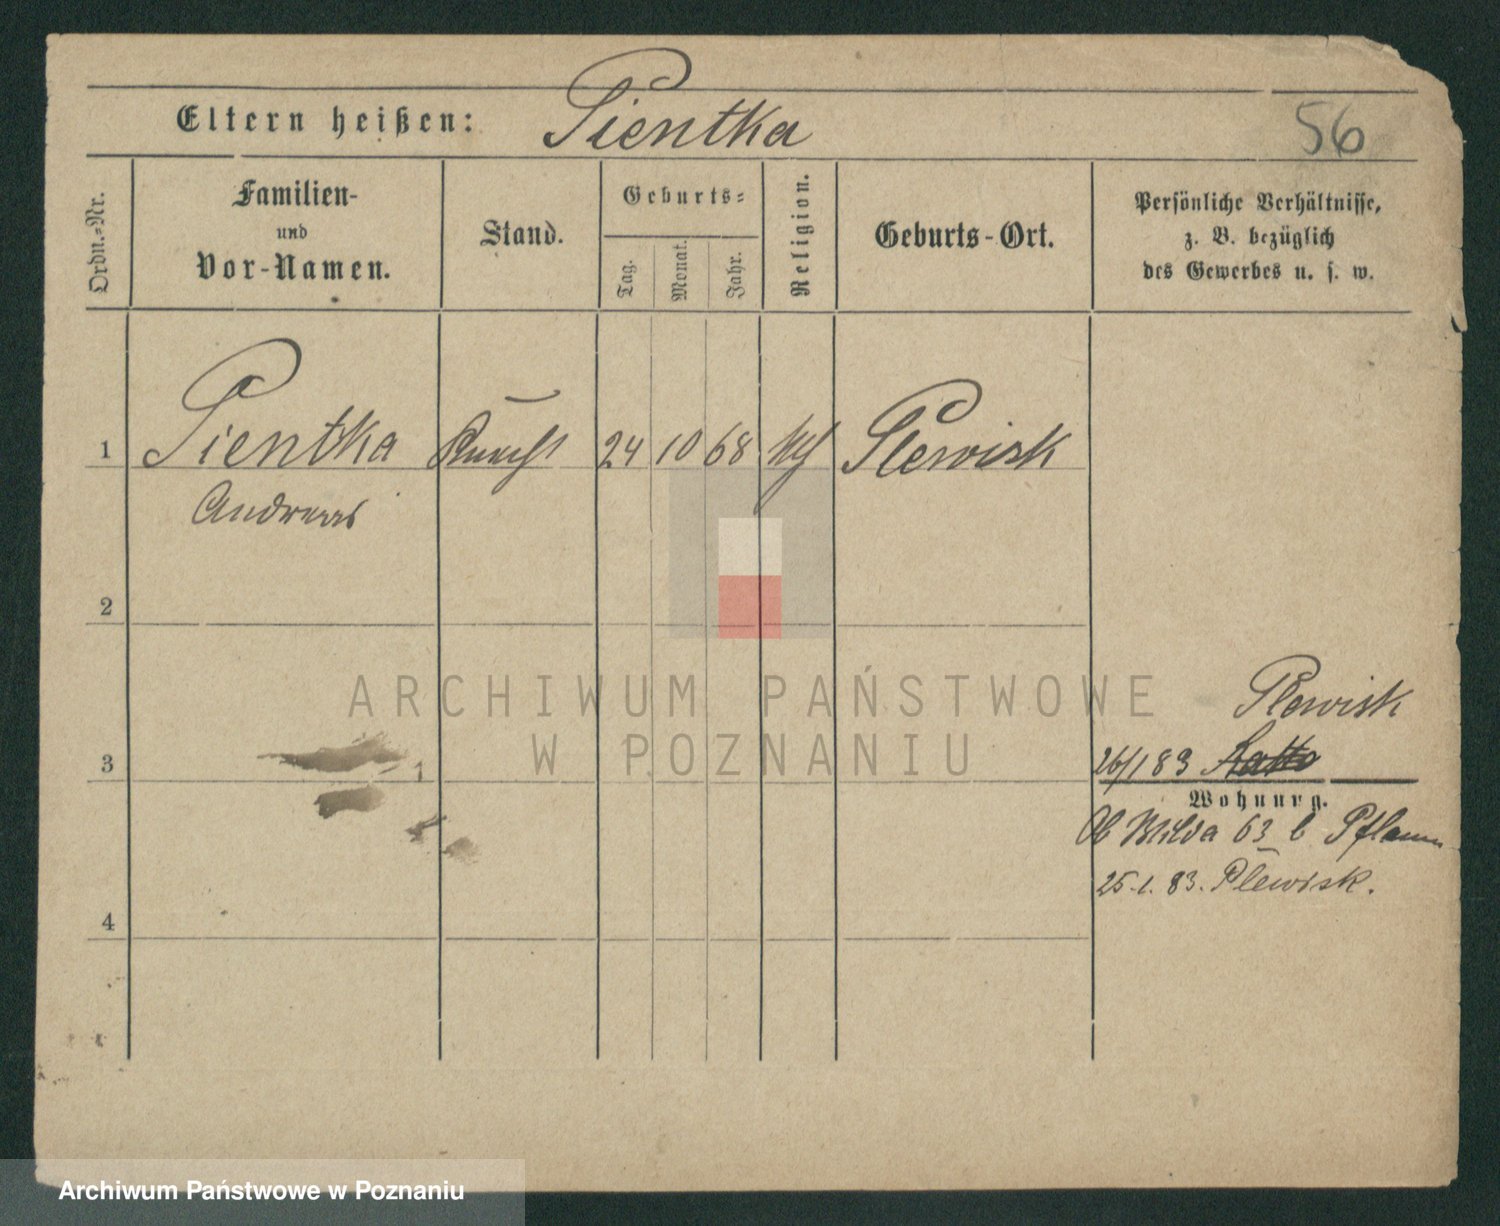 Eltern heißen: Pientka
56
Ordn.-Nr.
Familien-
und
Vor-Namen.
Stand.
Geburts-
Tag.
Monat.
Jahr.
Religion.
Geburts-Ort.
Persönliche Verhältnisse,
z. B. bezüglich
des Gewerbes u. s. w.
1 Pientka Knecht 24 10 68 Plewisk
Andreas
2
ARCHIWUM PAŃSTWOWE
W POZNANIU
Plewisk
3
26/1 83
Wohnung.
Ob Wilda 63 b Pflaum
25.1.83. Plewisk.
4
Archiwum Państwowe w Poznaniu